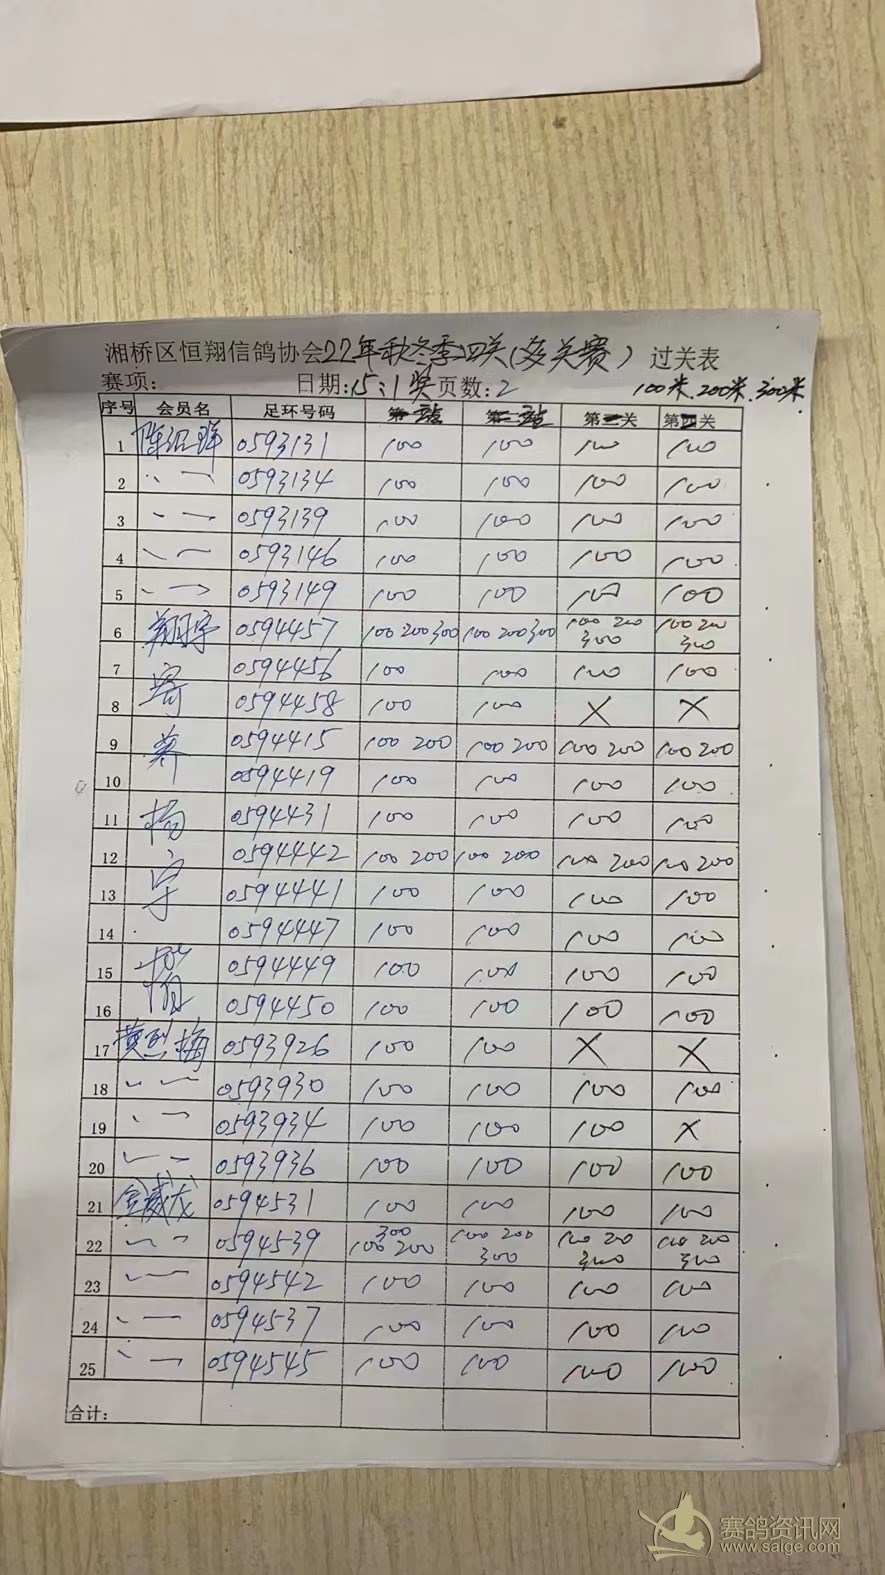 湘桥区恒翔信鸽协会22年秋冬季四关(多关赛) 过关表
赛项: 日期:15:1奖页数:2 100米.200米.300米
序号 会员名 足环号码 第一站 第二站 第三关 第四关
1 0593131 100 100 100 100
2 〃 0593134 100 100 100 100
3 〃 0593139 100 100 100 100
4 〃 0593146 100 100 100 100
5 〃 0593149 100 100 100 100
6 翔宇 0594457 100 200 300 100 200 300 100 200 300 100 200 300
7 0594456 100 100 100 100
8 寄 0594458 100 100 X X
9 养 0594415 100 200 100 200 100 200 100 200
10 0594419 100 100 100 100
11 杨 0594431 100 100 100 100
12 0594442 100 200 100 200 100 200 100 200
13 宇 0594441 100 100 100 100
14 0594447 100 100 100 100
15 0594449 100 100 100 100
16 0594450 100 100 100 100
17 黄烈梅 0593926 100 100 X X
18 〃 0593930 100 100 100 100
19 〃 0593934 100 100 100 X
20 〃 0593936 100 100 100 100
21 金威龙 0594531 100 100 100 100
22 〃 0594539 300 100 200 100 200 300 100 200 300 100 200 300
23 〃 0594542 100 100 100 100
24 〃 0594537 100 100 100 100
25 〃 0594545 100 100 100 100
合计:
赛鸽资讯网
www.saige.com